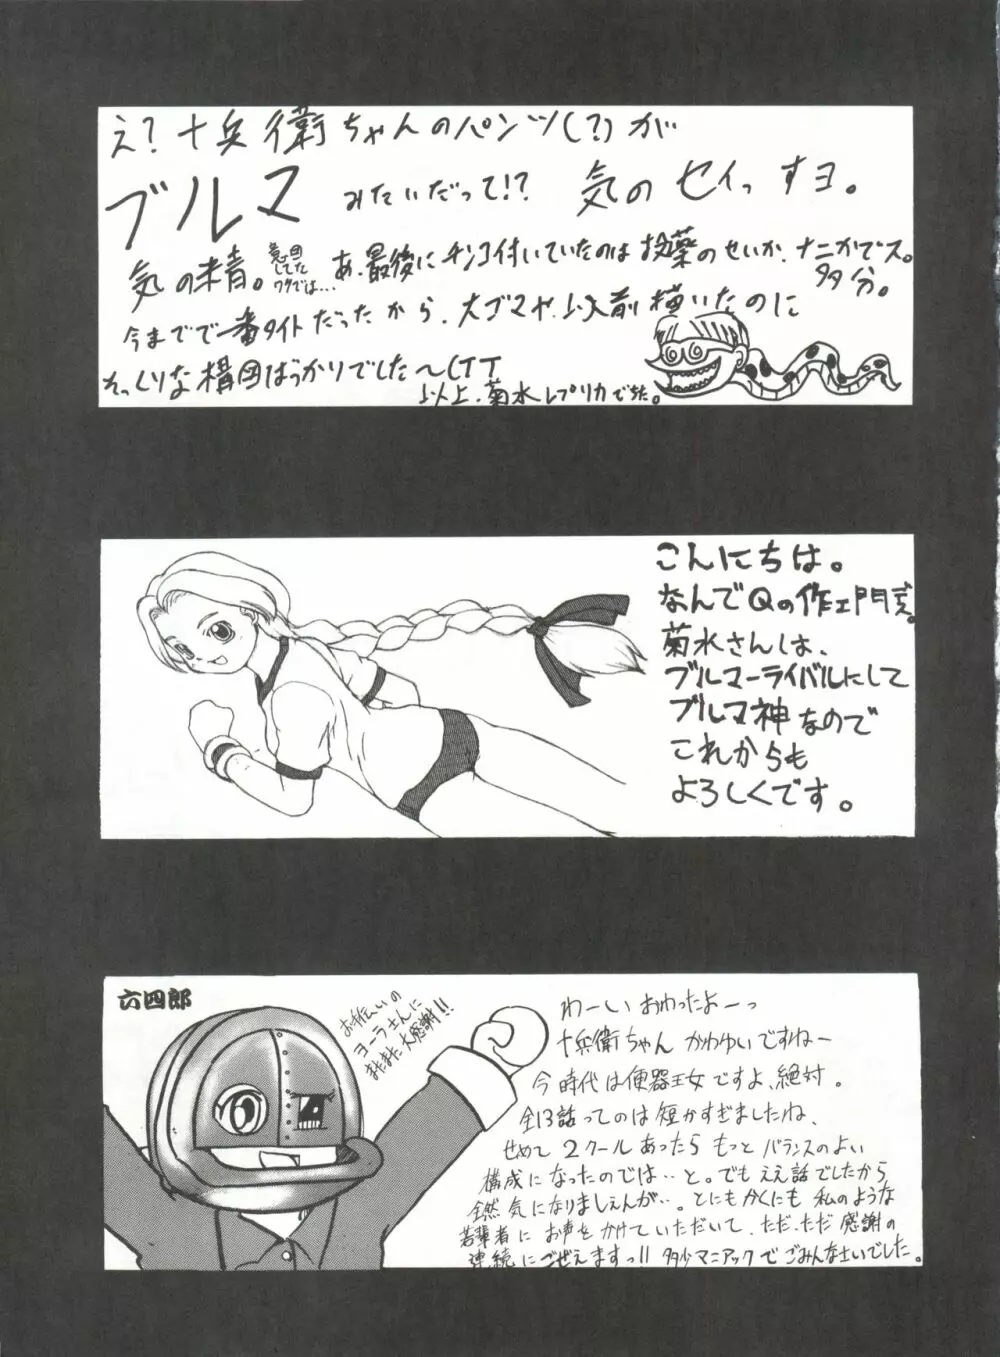 え?十兵衛ちゃんのパンツ(?)が
ブルマ みたいだって!? 気のセイっすヨ。
気の精。意図してたワケでは… あ、最後にチンコ付いていたのは投薬のせいか、ナニかでス。
多分。
今までで一番タイトだったから、大ゴマや、以前描いたのに
そっくりな構図ばっかりでした〜(TT
以上、菊水レプリカでした。
こんにちは。
なんでQの作ェ門だ。
菊水さんは、
ブルマーライバルにして
ブルマ神なので
これからも
よろしくです。
六四郎
お手伝いの
ヨーラさんに
またまた大感謝!!
わーい おわったよーっ
十兵衛ちゃん かわゆいですねー
今時代は便器王女ですよ、絶対。
全13話ってのは短かすぎましたね、
せめて2クールあったらもっとバランスのよい
構成になったのでは‥と。でもええ話でしたから
全然気になりましぇんが‥。とにもかくにも私のような
若輩者にお声をかけていただいて、ただ・ただ感謝の
連続にごぜえますっ!! 多少マニアックでごみんなせいでした。